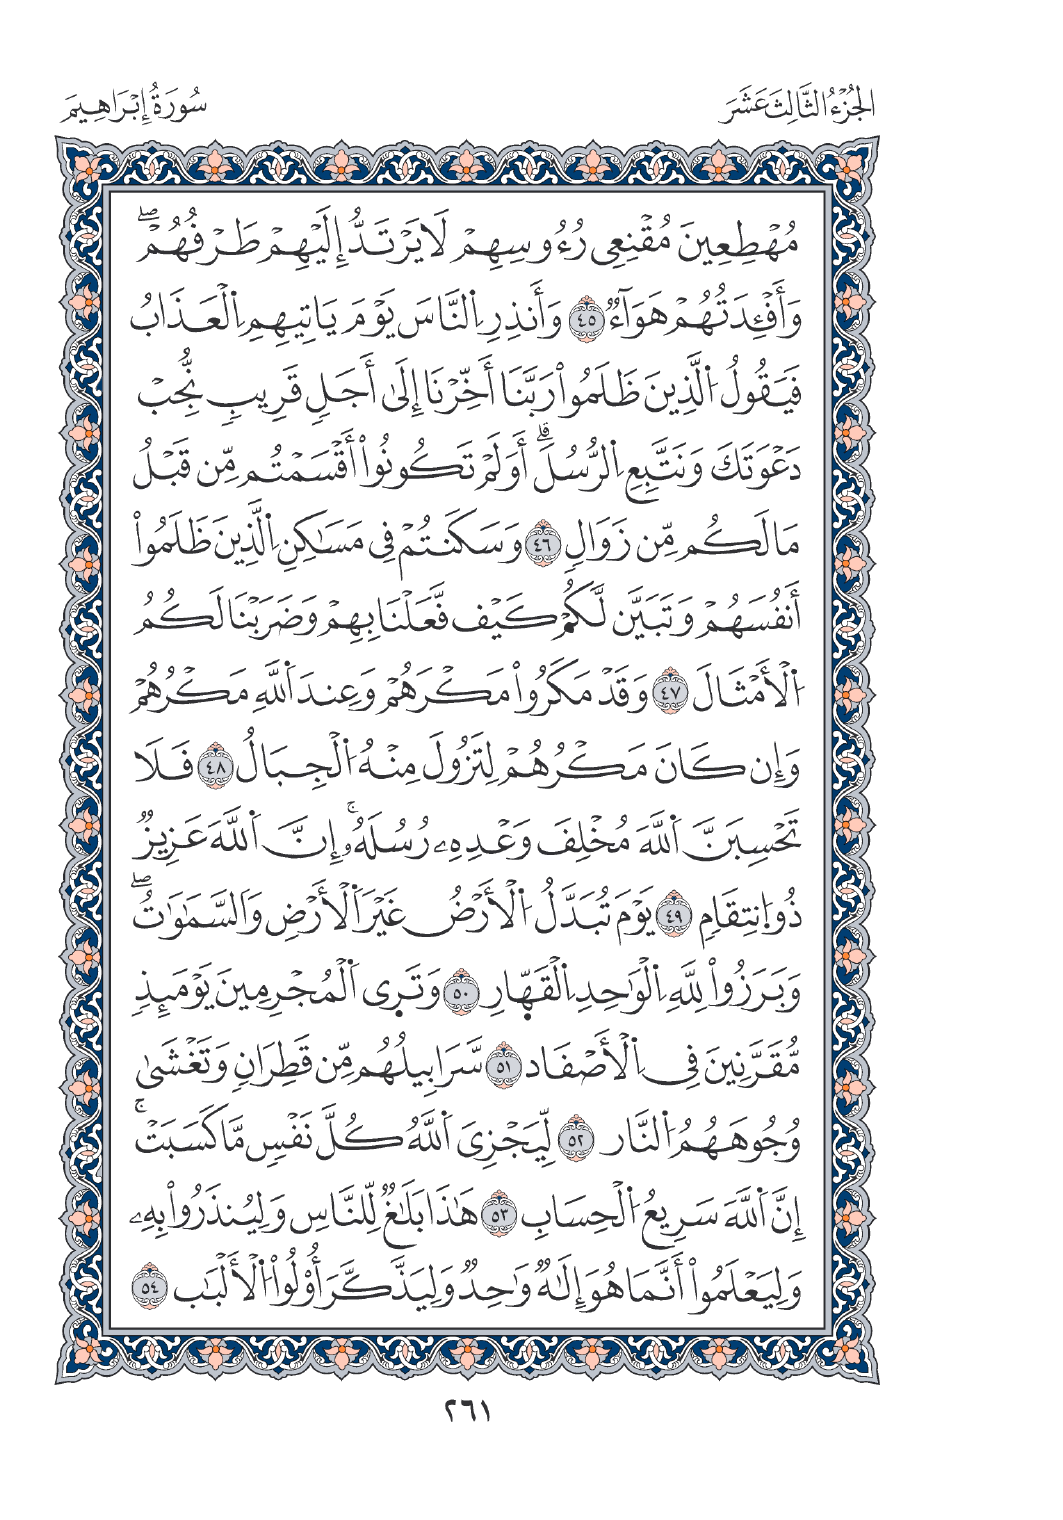 الجُزْءُ الثَّالِثَ عَشَرَ
سُورَةُ إِبْرَاهِيمَ
مُهْطِعِينَ مُقْنِعِي رُءُوسِهِمْ لَا يَرْتَدُّ إِلَيْهِمْ طَرْفُهُمْۖ
وَأَفْـِٔدَتُهُمْ هَوَآءٞ ٤٥ وَأَنذِرِ اِ۬لنَّاسَ يَوْمَ يَاتِيهِمِ اِ۬لْعَذَابُ
فَيَقُولُ اُ۬لَّذِينَ ظَلَمُواْ رَبَّنَا أَخِّرْنَا إِلَىٰ أَجَلٖ قَرِيبٖ نُّجِبْ
دَعْوَتَكَ وَنَتَّبِعِ اِ۬لرُّسُلَۗ أَوَلَمْ تَكُونُواْ أَقْسَمْتُم مِّن قَبْلُ
مَا لَكُم مِّن زَوَالٖ ٤٦ وَسَكَنتُمْ فِي مَسَٰكِنِ اِ۬لَّذِينَ ظَلَمُواْ
أَنفُسَهُمْ وَتَبَيَّن لَّكُمْ كَيْف فَّعَلْنَا بِهِمْ وَضَرَبْنَا لَكُمُ
اُ۬لْأَمْثَالَ ٤٧ وَقَدْ مَكَرُواْ مَكْرَهُمْ وَعِندَ اَ۬للَّهِ مَكْرُهُمْ
وَإِن كَانَ مَكْرُهُمْ لِتَزُولَ مِنْهُ اُ۬لْجِبَالُ ٤٨ فَلَا
تَحْسِبَنَّ اَ۬للَّهَ مُخْلِفَ وَعْدِهِۦ رُسُلَهُۥۚ إِنَّ اَ۬للَّهَ عَزِيزٞ
ذُو اُ۪نتِقَامٖ ٤٩ يَوْمَ تُبَدَّلُ اُ۬لْأَرْضُ غَيْرَ اَ۬لْأَرْضِ وَالسَّمَٰوَٰتُۖ
وَبَرَزُواْ لِلَّهِ اِ۬لْوَٰحِدِ اِ۬لْقَهّ۪ارِ ٥٠ وَتَرَى اَ۬لْمُجْرِمِينَ يَوْمَئِذٖ
مُّقَرَّنِينَ فِي اِ۬لْأَصْفَاد ٥١ سَّرَابِيلُهُم مِّن قَطِرَانٖ وَتَغْشَىٰ
وُجُوهَهُمُ اُ۬لنَّار ٥٢ لِّيَجْزِيَ اَ۬للَّهُ كُلَّ نَفْسٖ مَّا كَسَبَتْۚ
إِنَّ اَ۬للَّهَ سَرِيعُ اُ۬لْحِسَابِ ٥٣ هَٰذَا بَلَٰغٞ لِّلنَّاسِ وَلِيُنذَرُواْ بِهِۦ
وَلِيَعْلَمُواْ أَنَّمَا هُوَ إِلَٰهٞ وَٰحِدٞ وَلِيَذَّكَّرَ أُوْلُواْ اُ۬لْأَلْبَٰبِ ٥٤
٢٦١